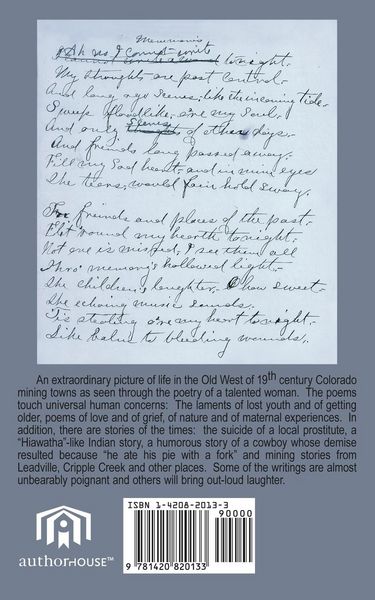 Memories
Ah no I cannot write
tonight.
My thoughts are past control.
And long ago scenes, like the incoming tide
Sweep floodlike, o'er my soul.
And only of other days.
And friends long passed away.
Fill my sad heart, and in mine eyes
The tears, would fain hold sway.
For friends and places of the past.
Flit round my hearth tonight.
Not one is missed, I see them all
Thro' memory's hallowed light.
The children's laughter, how sweet
The echoing music sounds.
Tis stealing o'er my heart tonight.
Like balm to bleeding wounds.
An extraordinary picture of life in the Old West of 19th century Colorado
mining towns as seen through the poetry of a talented woman. The poems
touch universal human concerns: The laments of lost youth and of getting
older, poems of love and of grief, of nature and of maternal experiences. In
addition, there are stories of the times: the suicide of a local prostitute, a
“Hiawatha”-like Indian story, a humorous story of a cowboy whose demise
resulted because “he ate his pie with a fork” and mining stories from
Leadville, Cripple Creek and other places. Some of the writings are almost
unbearably poignant and others will bring out-loud laughter.
ISBN 1-4208-2013-3
90000
9 781420 820133
authorHOUSE™